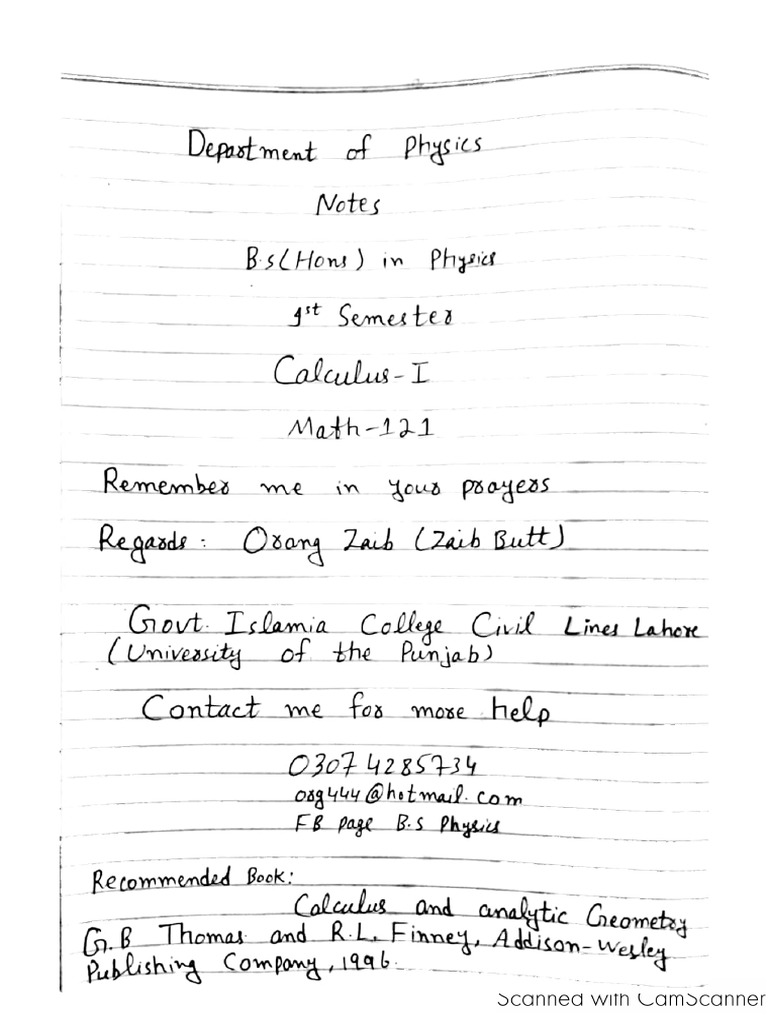 Department of Physics
Notes
B.s(Hons) in Physics
1st Semester
Calculus-I
Math-121
Remember me in your prayers
Regards: Orang Zaib (Zaib Butt)
Govt. Islamia College Civil Lines Lahore
(University of the Punjab)
Contact me for more help
03074285734
org444@hotmail.com
FB page B.S Physics
Recommended Book:
Calculus and analytic Geometry
G.B Thomas and R.L. Finney, Addison-Wesley
Publishing Company, 1996.
Scanned with CamScanner